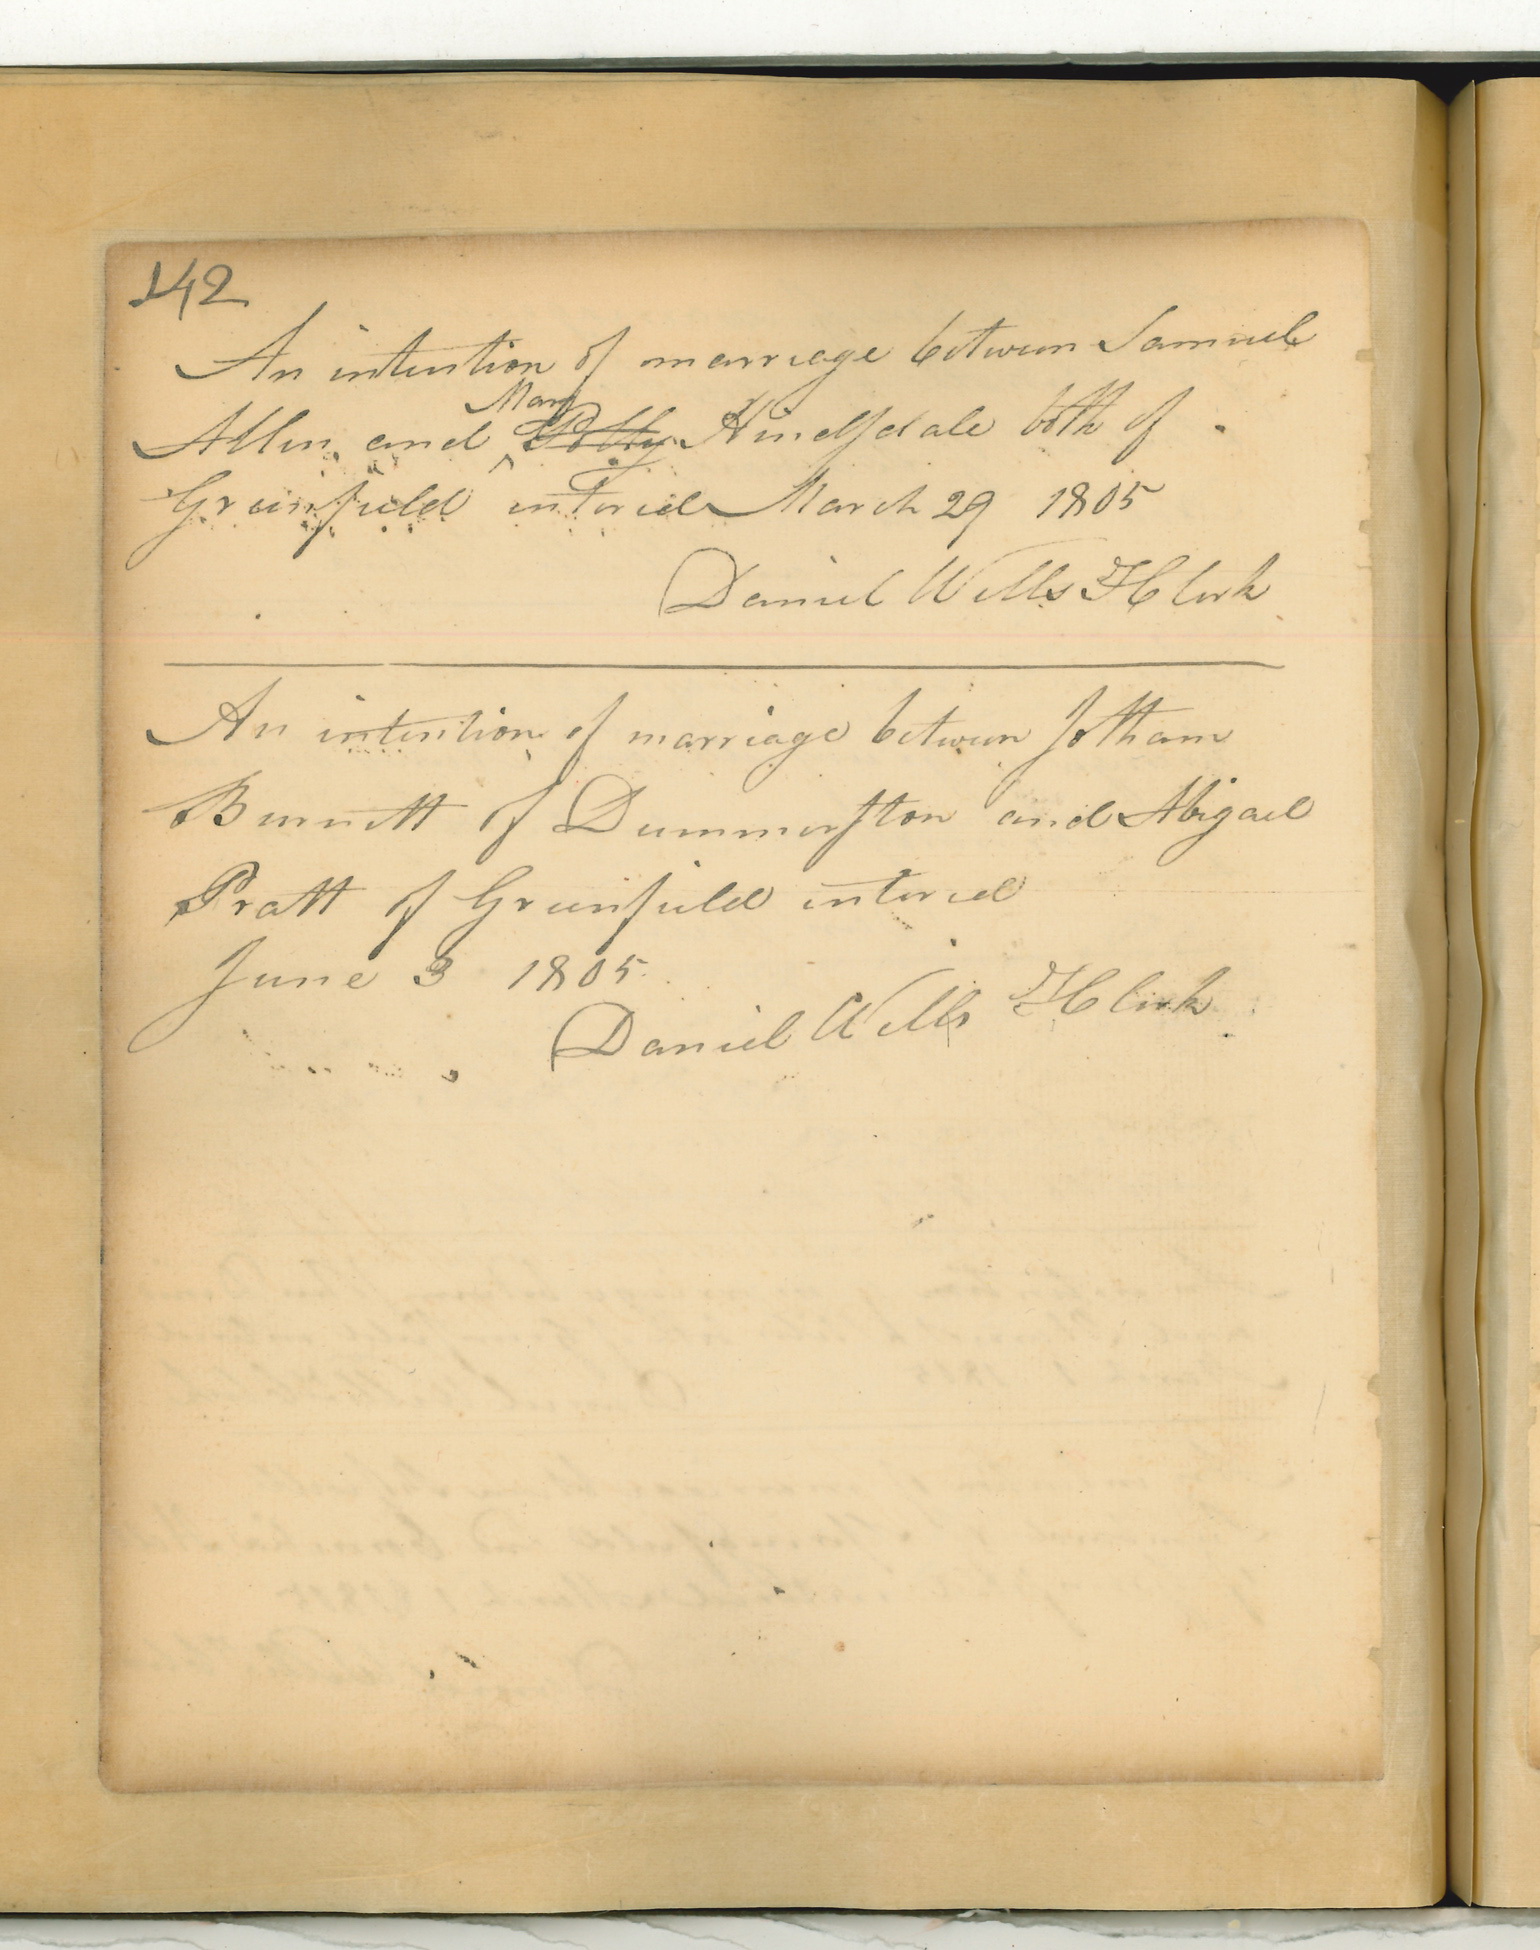 142
An intention of marriage between Samuel
Mary
Allen and Polly Hindsdale both of
Greenfield entered March 29 1805
Daniel Wells T Clerk
An intention of marriage between Jotham
Burnett of Dummerston and Abigael
Pratt of Greenfield entered
June 3 1805
Daniel Wells T Clerk